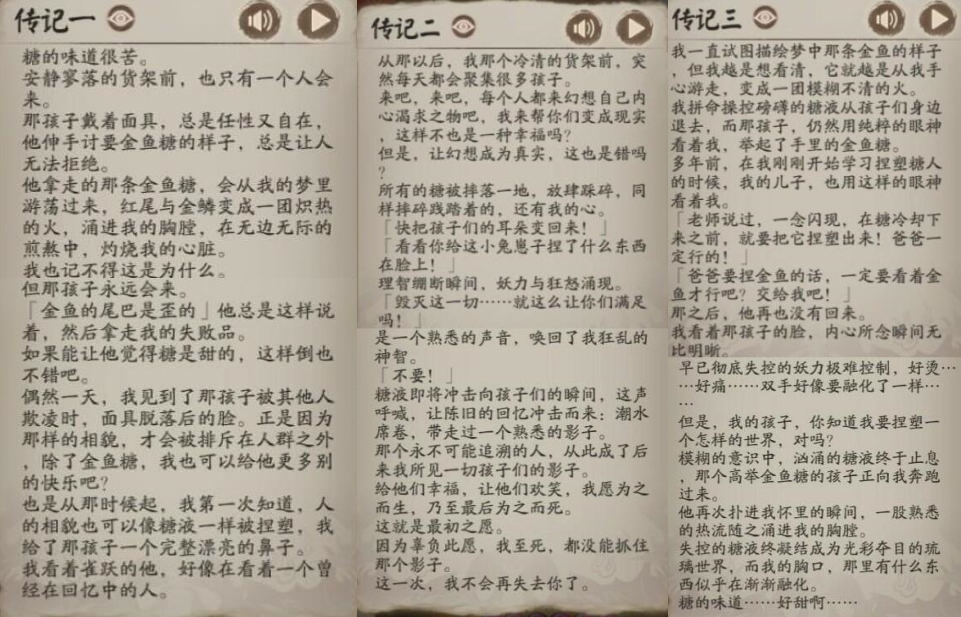 传记一
糖的味道很苦。
安静寥落的货架前，也只有一个人会
来。
那孩子戴着面具，总是任性又自在，
他伸手讨要金鱼糖的样子，总是让人
无法拒绝。
他拿走的那条金鱼糖，会从我的梦里
游荡过来，红尾与金鳞变成一团炽热
的火，涌进我的胸膛，在无边无际的
煎熬中，灼烧我的心脏。
我也记不得这是为什么。
但那孩子永远会来。
「金鱼的尾巴是歪的」他总是这样说
着，然后拿走我的失败品。
如果能让他觉得糖是甜的，这样倒也
不错吧。
偶然一天，我见到了那孩子被其他人
欺凌时，面具脱落后的脸。正是因为
那样的相貌，才会被排斥在人群之外
，除了金鱼糖，我也可以给他更多别
的快乐吧？
也是从那时候起，我第一次知道，人
的相貌也可以像糖液一样被捏塑，我
给了那孩子一个完整漂亮的鼻子。
我看着雀跃的他，好像在看着一个曾
经在回忆中的人。
传记二
从那以后，我那个冷清的货架前，突
然每天都会聚集很多孩子。
来吧，来吧，每个人都来幻想自己内
心渴求之物吧，我来帮你们变成现实
，这样不也是一种幸福吗？
但是，让幻想成为真实，这也是错吗
？
所有的糖被摔落一地，放肆踩碎，同
样摔碎践踏着的，还有我的心。
「快把孩子们的耳朵变回来！」
「看看你给这小兔崽子捏了什么东西
在脸上！」
理智绷断瞬间，妖力与狂怒涌现。
「毁灭这一切……就这么让你们满足
吗！
是一个熟悉的声音，唤回了我狂乱的
神智。
「不要！」
糖液即将冲击向孩子们的瞬间，这声
呼喊，让陈旧的回忆冲击而来：潮水
席卷，带走过一个熟悉的影子。
那个永不可能追溯的人，从此成了后
来我所见一切孩子们的影子。
给他们幸福，让他们欢笑，我愿为之
而生，乃至最后为之而死。
这就是最初之愿。
因为辜负此愿，我至死，都没能抓住
那个影子。
这一次，我不会再失去你了。
传记三
我一直试图描绘梦中那条金鱼的样子
，但我越是想看清，它就越是从我手
心游走，变成一团模糊不清的火。
我拼命操控磅礴的糖液从孩子们身边
退去，而那孩子，仍然用纯粹的眼神
看着我，举起了手里的金鱼糖。
多年前，在我刚刚开始学习捏塑糖人
的时候，我的儿子，也用这样的眼神
看着我。
「老师说过，一念闪现，在糖冷却下
来之前，就要把它捏塑出来！爸爸一
定行的！」
「爸爸要捏金鱼的话，一定要看着金
鱼才行吧？交给我吧！」
那之后，他再也没有回来。
我看着那孩子的脸，内心所念瞬间无
比明晰。
早已彻底失控的妖力极难控制，好烫…
…好痛……双手好像要融化了一样…
…
但是，我的孩子，你知道我要捏塑一
个怎样的世界，对吗？
模糊的意识中，汹涌的糖液终于止息
，那个高举金鱼糖的孩子正向我奔跑
过来。
他再次扑进我怀里的瞬间，一股熟悉
的热流随之涌进我的胸膛。
失控的糖液终凝结成为光彩夺目的琉
璃世界，而我的胸口，那里有什么东
西似乎在渐渐融化。
糖的味道……好甜啊……